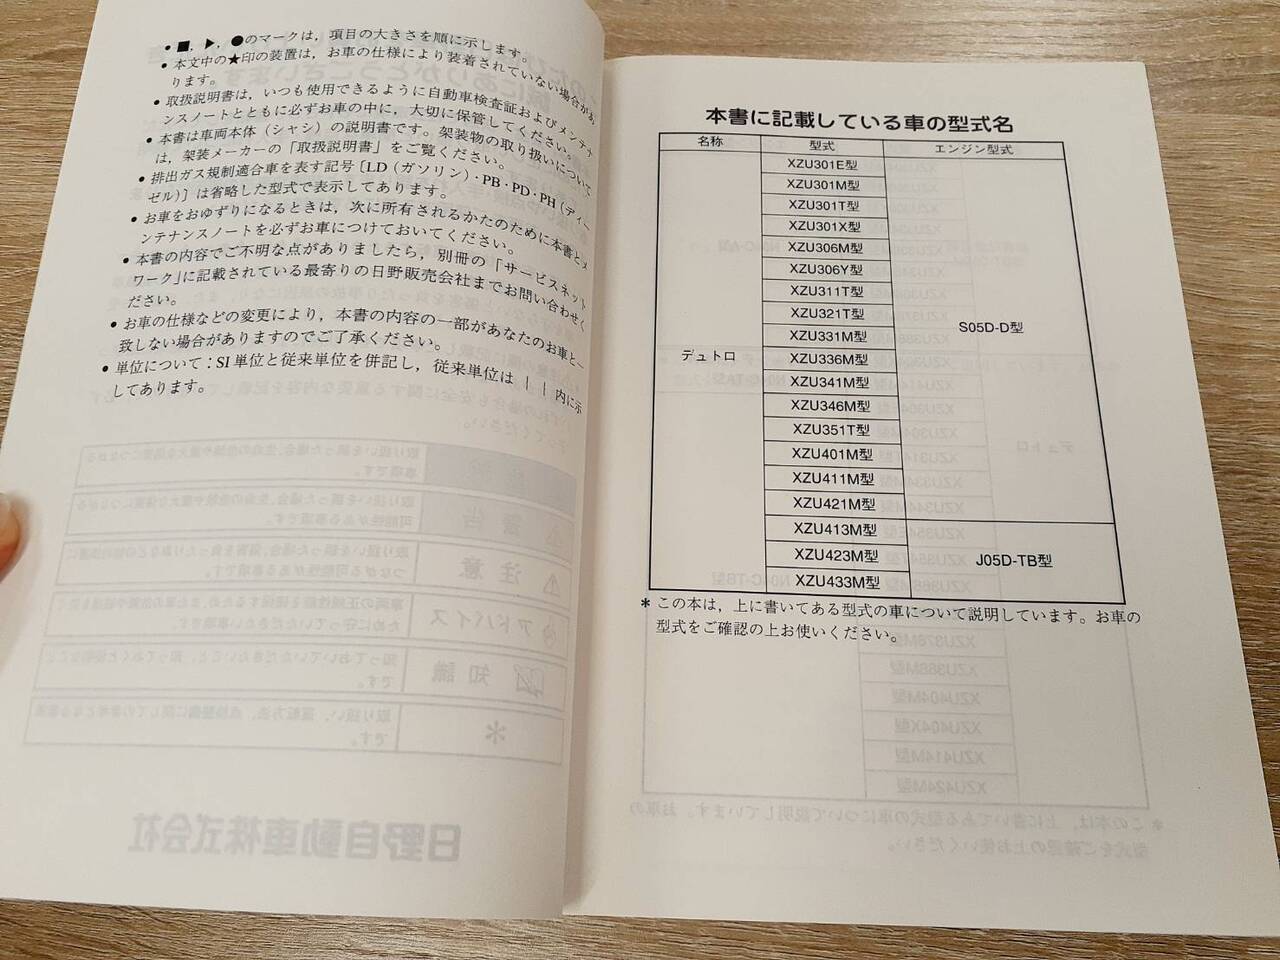 ● ■，▶，●のマークは，項目の大きさを順に示します。
● 本文中の★印の装置は，お車の仕様により装着されていない場合があ
ります。
● 取扱説明書は，いつも使用できるように自動車検査証およびメンテナ
ンスノートとともに必ずお車の中に，大切に保管してください。
● 本書は車両本体（シャシ）の説明書です。架装物の取り扱いについて
は，架装メーカーの「取扱説明書」をご覧ください。
● 排出ガス規制適合車を表す記号〔LD（ガソリン）・PB・PD・PH（ディー
ゼル）〕は省略した型式で表示してあります。
● お車をおゆずりになるときは，次に所有されるかたのために本書とメ
ンテナンスノートを必ずお車につけておいてください。
● 本書の内容でご不明な点がありましたら，別冊の「サービスネット
ワーク」に記載されている最寄りの日野販売会社までお問い合わせく
ださい。
● お車の仕様などの変更により，本書の内容の一部があなたのお車と一
致しない場合がありますのでご了承ください。
● 単位について：SI単位と従来単位を併記し，従来単位は｜｜内に示
してあります。
本書に記載している車の型式名
名称 型式 エンジン型式
XZU301E型
XZU301M型
XZU301T型
XZU301X型
XZU306M型
XZU306Y型
XZU311T型
XZU321T型
S05D-D型
XZU331M型
デュトロ
XZU336M型
XZU341M型
XZU346M型
XZU351T型
XZU401M型
XZU411M型
XZU421M型
XZU413M型
XZU423M型 J05D-TB型
XZU433M型
＊ この本は，上に書いてある型式の車について説明しています。お車の
型式をご確認の上お使いください。